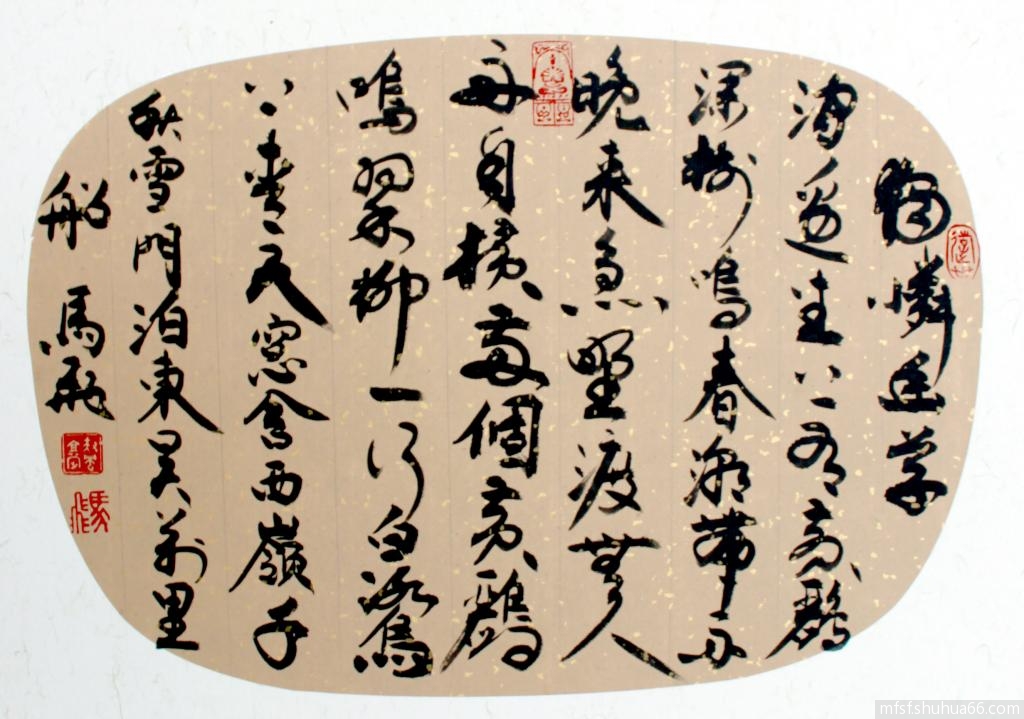 獨憐幽草
澗邊生上有黃鸝
深樹鳴春潮帶雨
晚來急野渡無人
舟自橫兩個黃鸝
鳴翠柳一行白鷺
上青天窗含西嶺千
秋雪門泊東吳萬里
船 馬
mfsfshuhua66.com